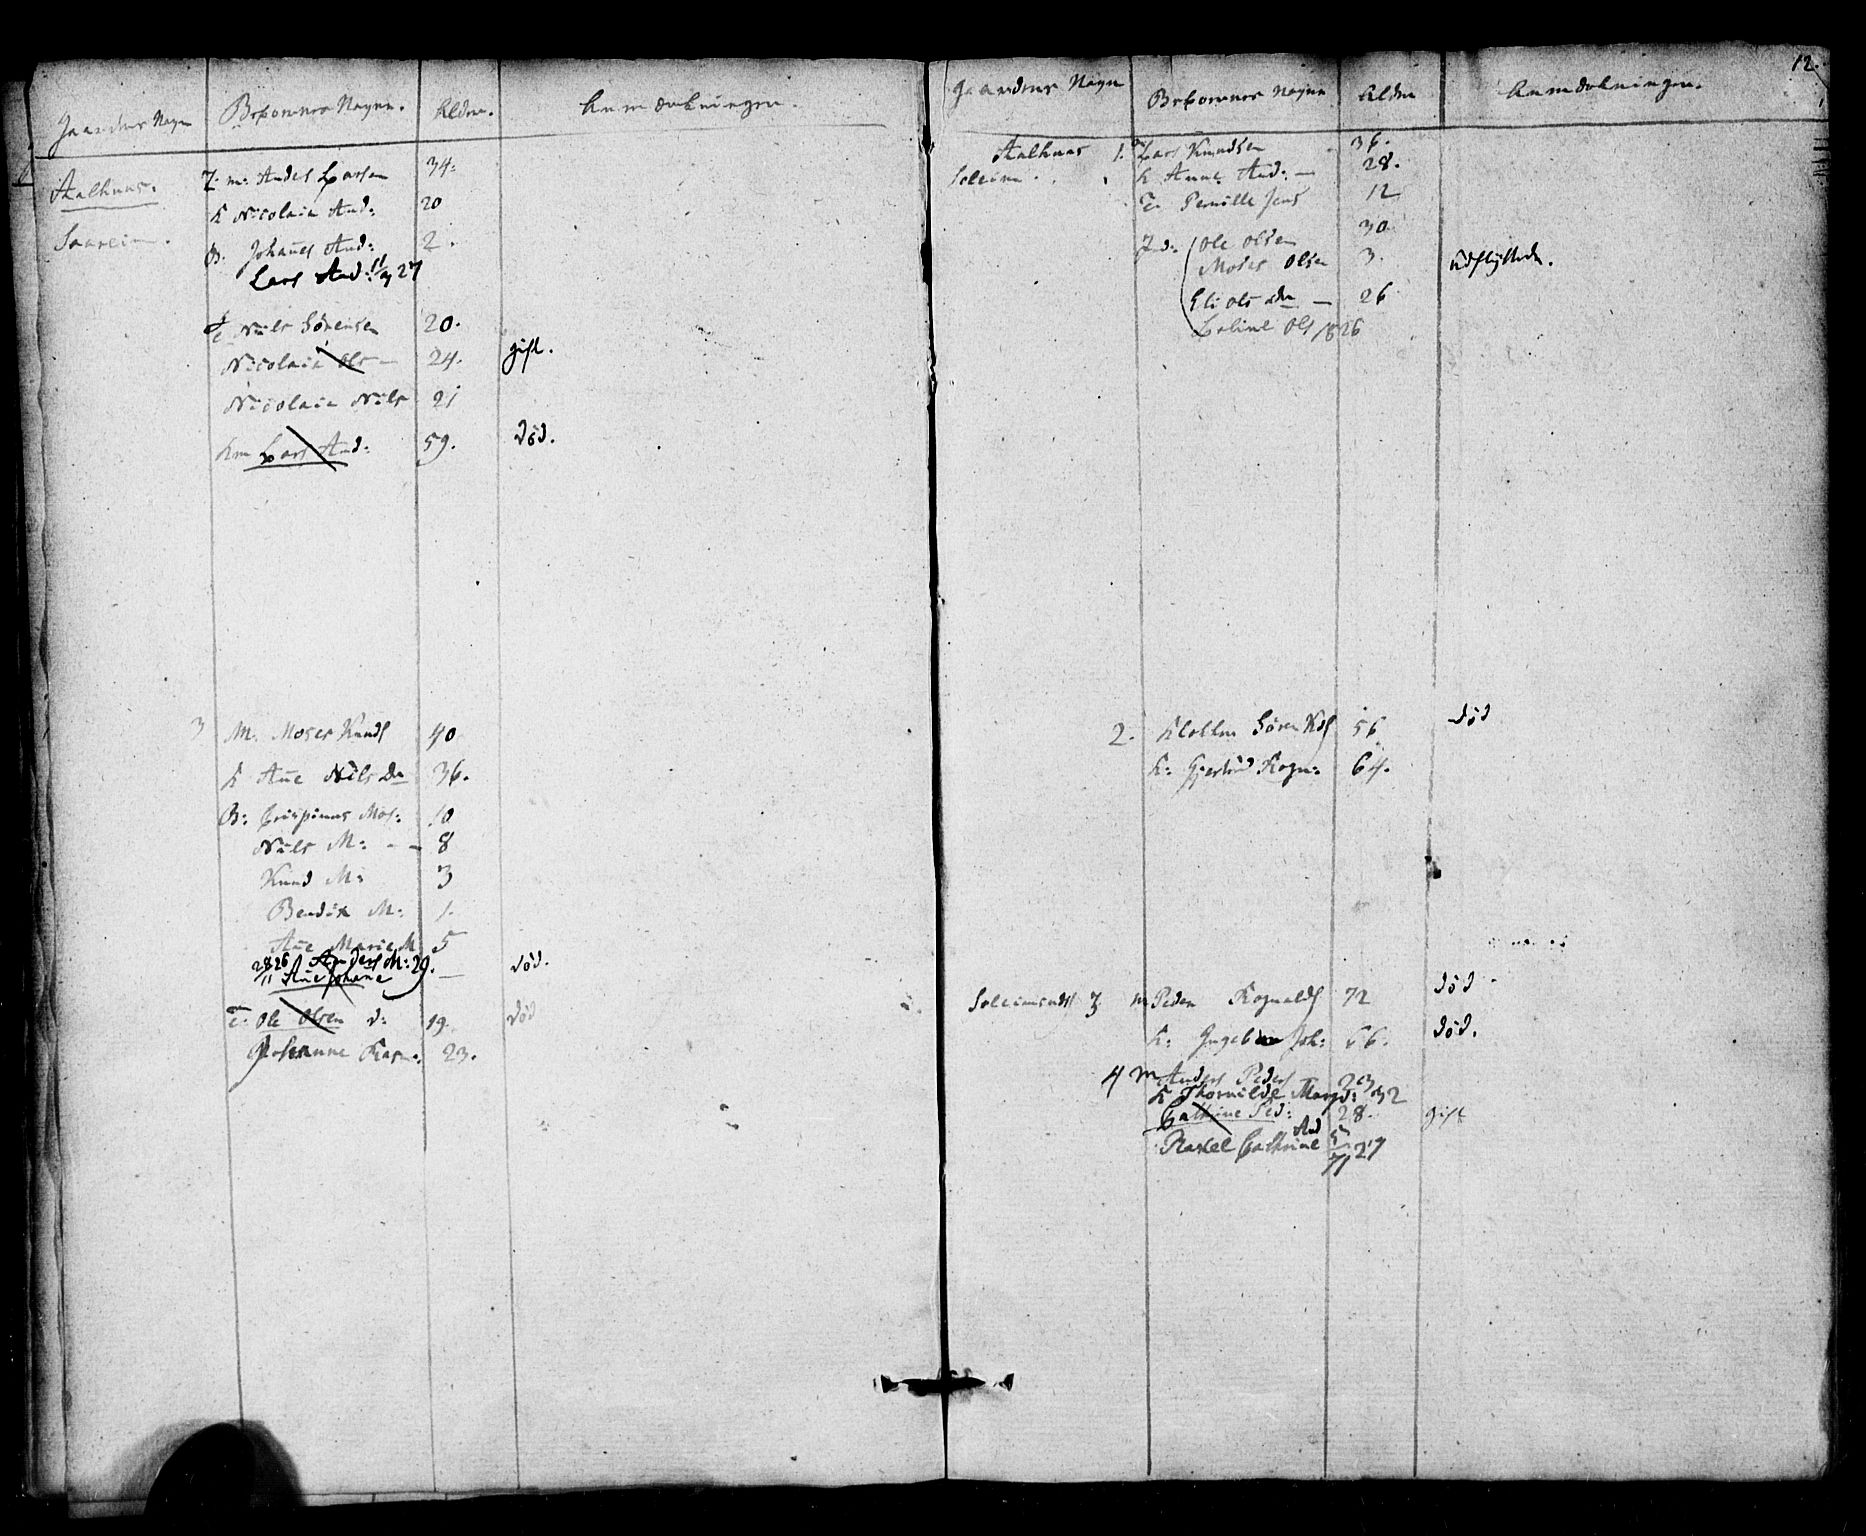 Gaardens Navn
Beboernes Navne.
Alder.
Anmærkninger.
Aalhuus.
2. m: Anders Larsen 34.
K Nicolaia And: 20
Saareim.
B. Johanes And: 2.
Lars And: 11/3 27
T. Nils Sörensen 20.
Nicolaia Ols— 24. gift.
Nicolaia Nils 21
Km Lars And: 59. död.
3 M. Moses Knuds 40
K Ane Nils Dr 36.
B: Crispinus Mos: 10
Nils M: - - 8
Knud M: 3
Bendix M: 1.
Ane Marie M 5
Anders M: 29.
28/11 26 Ane Johane — död.
T: Ole Olsen d: 19. död
Johanne Rasm. 23.
12.
Gaardens Navn
Beboernes Navne
Alder
Anmærkninger.
Aalhuus 1. m Lars Knudsen 36.
Soleim. K Anne And: — 28.
T. Pernille Jens 12
Ind: Ole Olsen 30
Moses Olsen 3. Udflyttede.
Eli Ols Dr — 26
Ols 1826
2. Sören Kds 56 död
K: Gjertrud Rogn: 64.
3 m Peder Rognalds 72 död
K: Ingeb Joh: 66. död.
4 m Anders Peders 23
K Thornilde Mogd: 32
Cathrine Ped: 28. gift
And
Rakel Cathrine 5/11 27